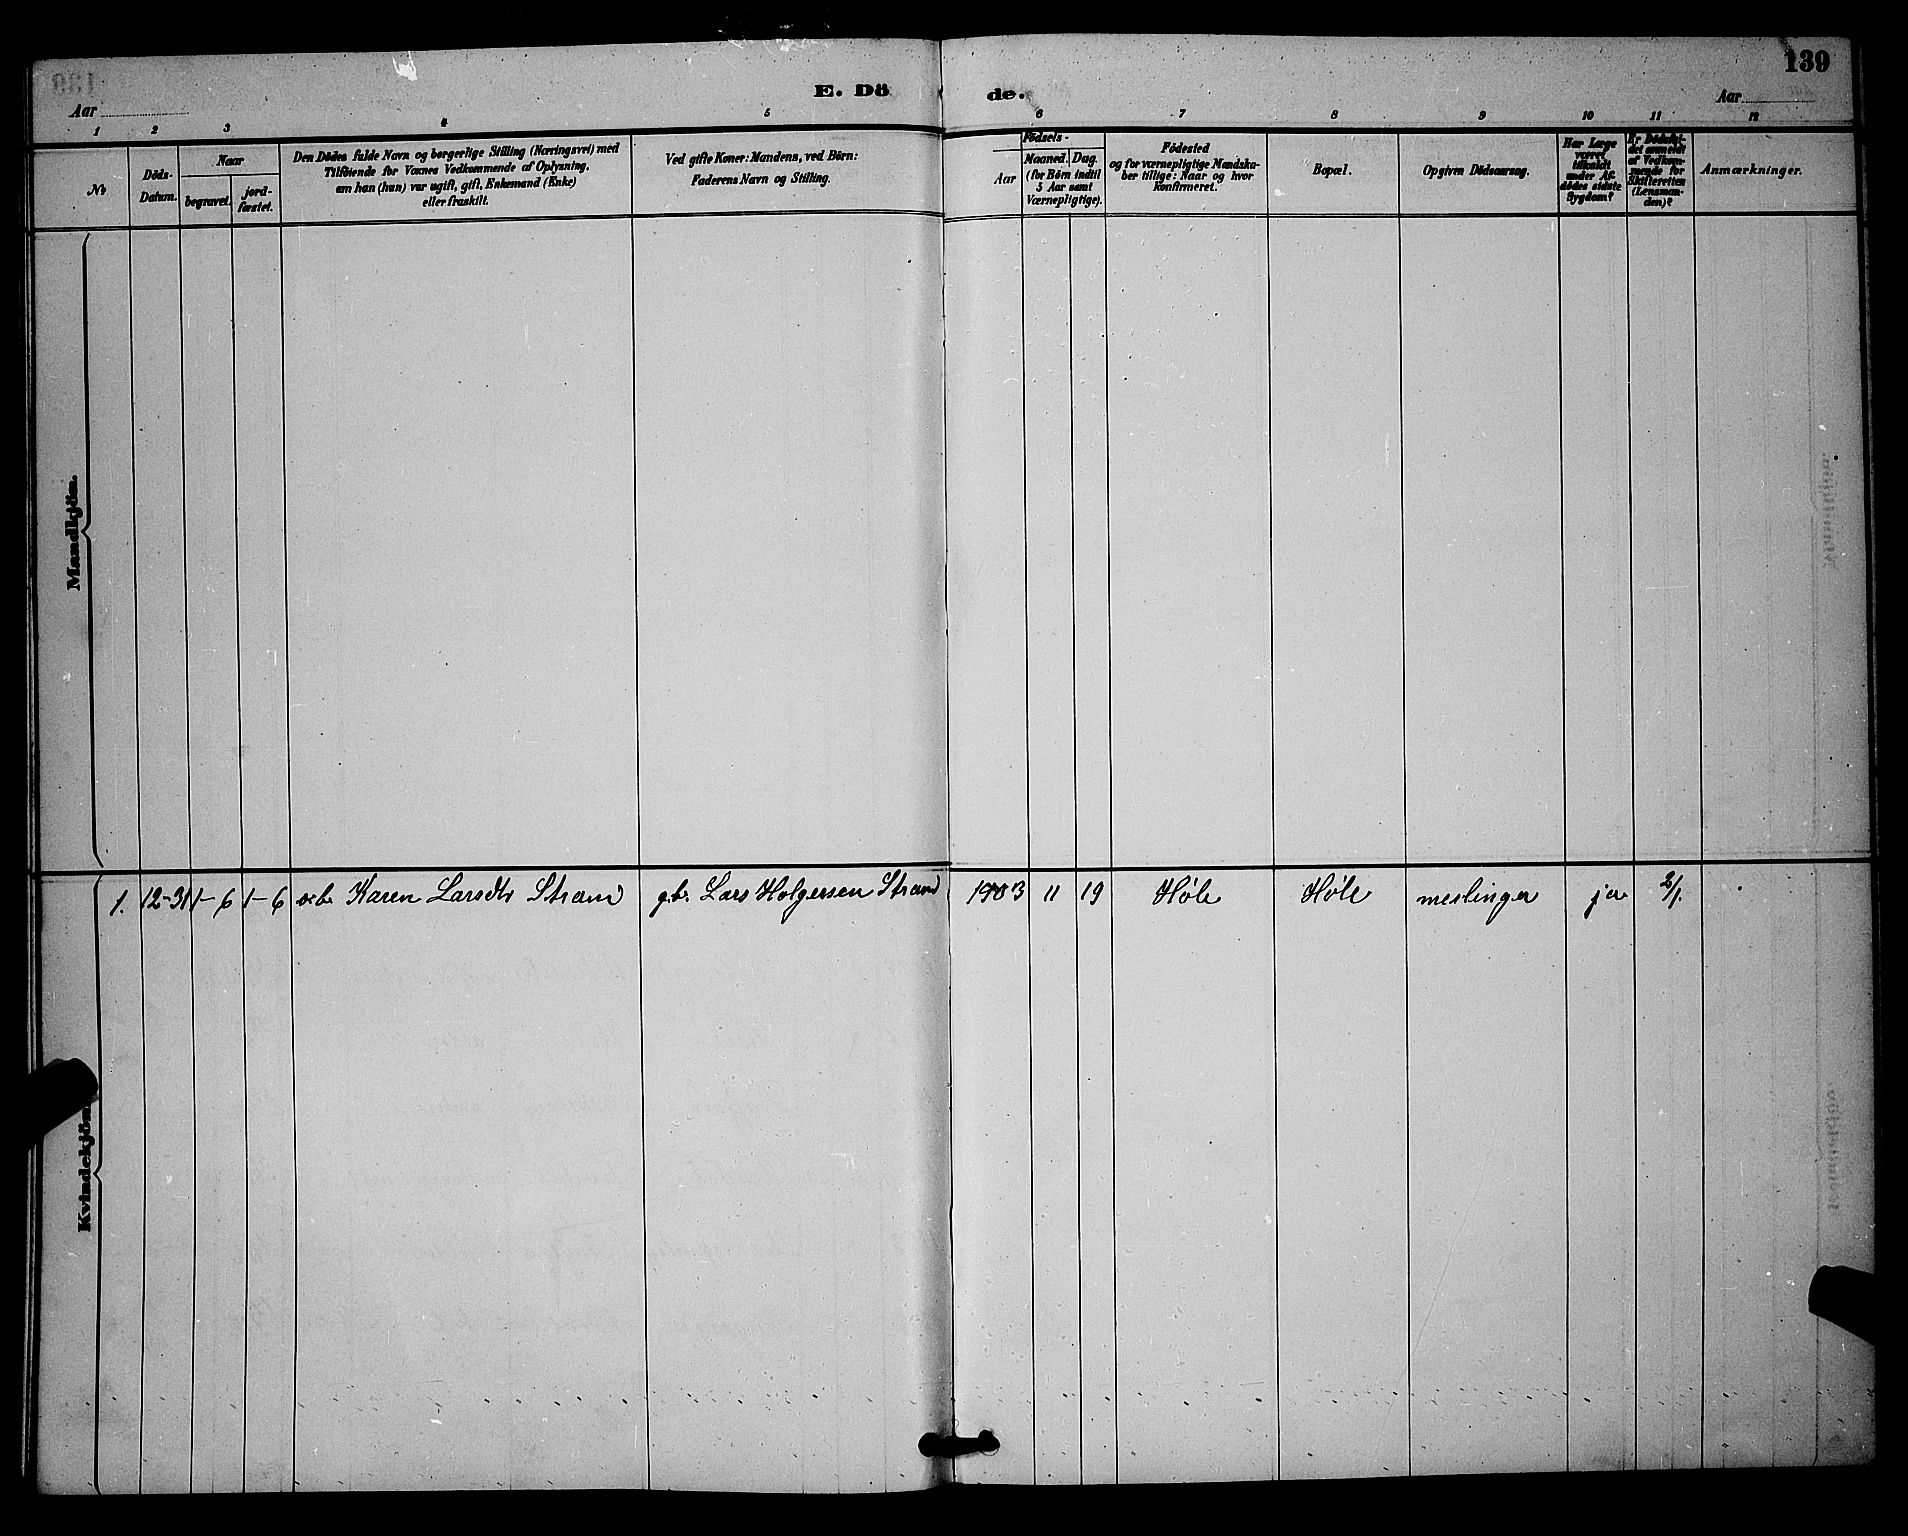 139
E. Dö de.
Aar
Aar
1 2 3 4 5 6 7 8 9 10 11 12
No
Döds-
Datum.
Naar
begravet.
jord-
fæstet.
Den Dödes fulde Navn og borgerlige Stilling (Næringsvei) med
Tilföiende for Voxnes Vedkommende af Oplysning,
om han (hun) var ugift, gift, Enkemand (Enke)
eller fraskilt.
Ved gifte Koner: Mandens, ved Börn:
Faderens Navn og Stilling.
Födsels-
Aar
Maaned. Dag.
(for Börn indtil
5 Aar samt
Værnepligtige).
Födested
og for værnepligtige Mandska-
ber tillige: Naar og hvor
konfirmeret.
Bopæl.
Opgiven Dödsaarsag.
Har Læge
været
tilkaldt
under Af-
dödes sidste
Sygdom?
Er Dödsfal-
det anmeldt
af Vedkom-
mende for
Skifteretten
(Lensman-
den)?
Anmærkninger.
Mandkjön.
1. 12-31 1-6 1-6 Karen Larsdtr Strand gbr. Lars Holgersen Strand 1903 11 19 Høle Høle meslinger ja 2/1.
Kvindekjön.